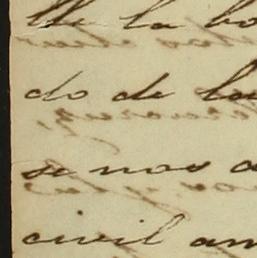 lle la bo
do de la
se nos a
civil am